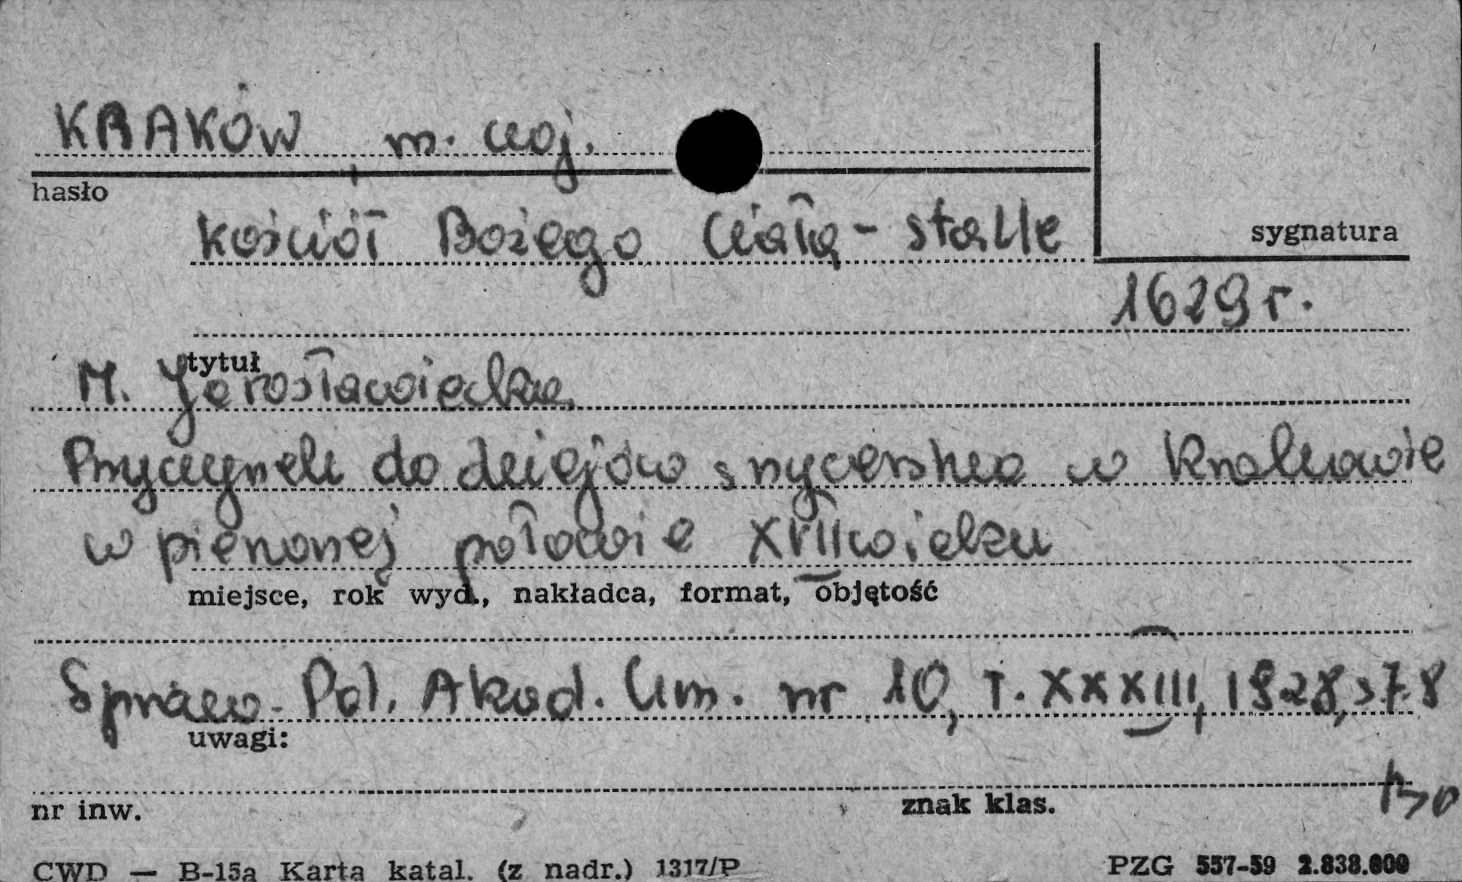 KRAKÓW, m. woj.
hasło
kościół Bożego Ciała - stalle
sygnatura
1629 r.
tytuł
M. Jarosławiecka
Przyczynek do dziejów snycerstwa w Krakowie
w pierwszej połowie XVII wieku
miejsce, rok wyd., nakładca, format, objętość
Spraw. Pol. Akad. Um. nr 10, T. XXXIII, 1928, s 7-8
uwagi:
nr inw.
znak klas.
CWD — B-15a Karta katal. (z nadr.) 1317/P
PZG 557-59 2.838.000